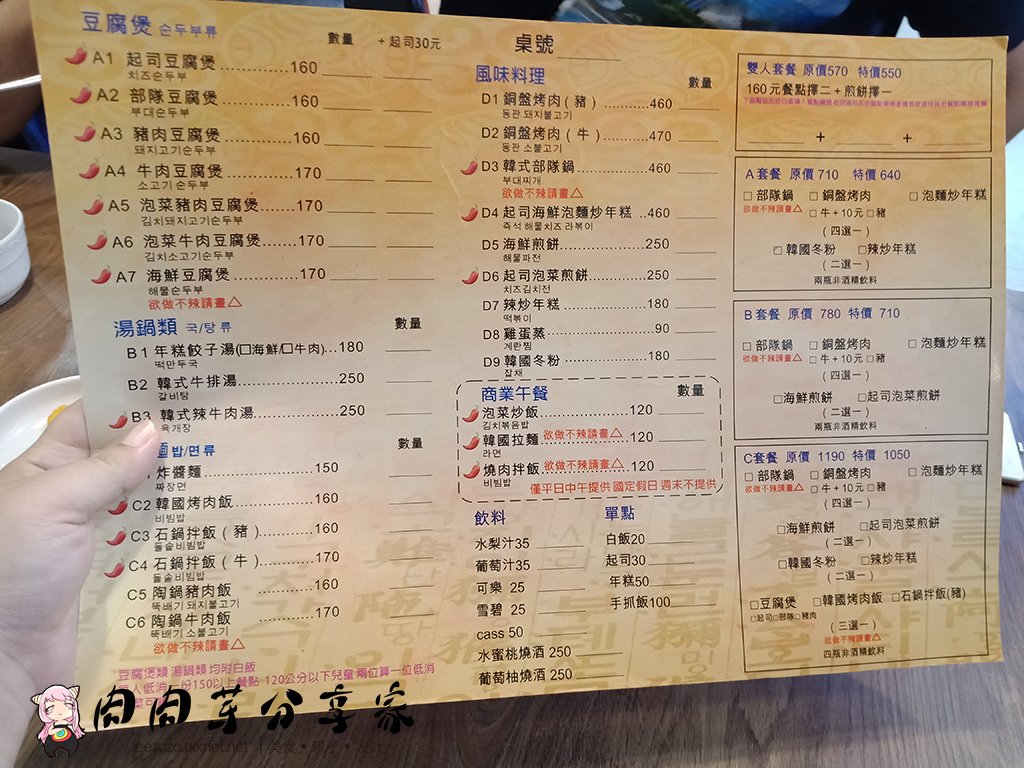 豆腐煲 순두부류 數量 +起司30元
A1 起司豆腐煲 160
치즈순두부
A2 部隊豆腐煲 160
부대순두부
A3 豬肉豆腐煲 160
돼지고기순두부
A4 牛肉豆腐煲 170
소고기순두부
A5 泡菜豬肉豆腐煲 170
김치돼지고기순두부
A6 泡菜牛肉豆腐煲 170
김치소고기순두부
A7 海鮮豆腐煲 170
해물순두부
欲做不辣請畫△
湯鍋類 국/탕 류 數量
B1 年糕餃子湯(□海鮮/□牛肉)...180
떡만두국
B2 韓式牛排湯 250
갈비탕
B3 韓式辣牛肉湯 250
육개장
밥/면류 數量
炸醬麵 150
짜장면
C2 韓國烤肉飯 160
비빔밥
C3 石鍋拌飯(豬) 160
돌솥비빔밥
C4 石鍋拌飯(牛) 170
돌솥비빔밥
C5 陶鍋豬肉飯 160
뚝배기 돼지불고기
C6 陶鍋牛肉飯 170
뚝배기 소불고기
欲做不辣請畫△
豆腐煲類 湯鍋類 均附白飯
人低消一份150以上餐點 120公分以下兒童 兩位算一位低消
桌號
風味料理 數量
D1 銅盤烤肉(豬) 460
동판 돼지불고기
D2 銅盤烤肉(牛) 470
동판 소불고기
D3 韓式部隊鍋 460
부대찌개
欲做不辣請畫△
D4 起司海鮮泡麵炒年糕 ..460
즉석 해물치즈 라볶이
D5 海鮮煎餅 250
해물파전
D6 起司泡菜煎餅 250
치즈김치전
D7 辣炒年糕 180
떡볶이
D8 雞蛋蒸 90
계란찜
D9 韓國冬粉 180
잡채
商業午餐 數量
泡菜炒飯 120
김치볶음밥
韓國拉麵 欲做不辣請畫△ 120
라면
燒肉拌飯 欲做不辣請畫△ 120
비빔밥
僅平日中午提供 國定假日 週末不提供
飲料
水梨汁35
葡萄汁35
可樂 25
雪碧 25
cass 50
水蜜桃燒酒 250
葡萄柚燒酒 250
單點
白飯20
起司30
年糕50
手抓飯100
雙人套餐 原價570 特價550
160元餐點擇二+煎餅擇一
+ +
A套餐 原價710 特價640
□部隊鍋 □銅盤烤肉 □泡麵炒年糕
欲做不辣請畫△ □牛+10元 □豬
(四選一)
□韓國冬粉 □辣炒年糕
(二選一)
兩瓶非酒精飲料
B套餐 原價 780 特價 710
□部隊鍋 □銅盤烤肉 □泡麵炒年糕
欲做不辣請畫△ □牛+10元 □豬
(四選一)
□海鮮煎餅 □起司泡菜煎餅
(二選一)
兩瓶非酒精飲料
C套餐 原價 1190 特價 1050
□部隊鍋 □銅盤烤肉 □泡麵炒年糕
欲做不辣請畫△ □牛+10元 □豬
(四選一)
□海鮮煎餅 □起司泡菜煎餅
(二選一)
□韓國冬粉 □辣炒年糕
(二選一)
□豆腐煲 □韓國烤肉飯 □石鍋拌飯(豬)
□起司□部隊□豬肉
(三選一)
欲做不辣請畫△
四瓶非酒精飲料
肉肉芽分享家
leezozo.pixnet.net | 美食•親子•設計